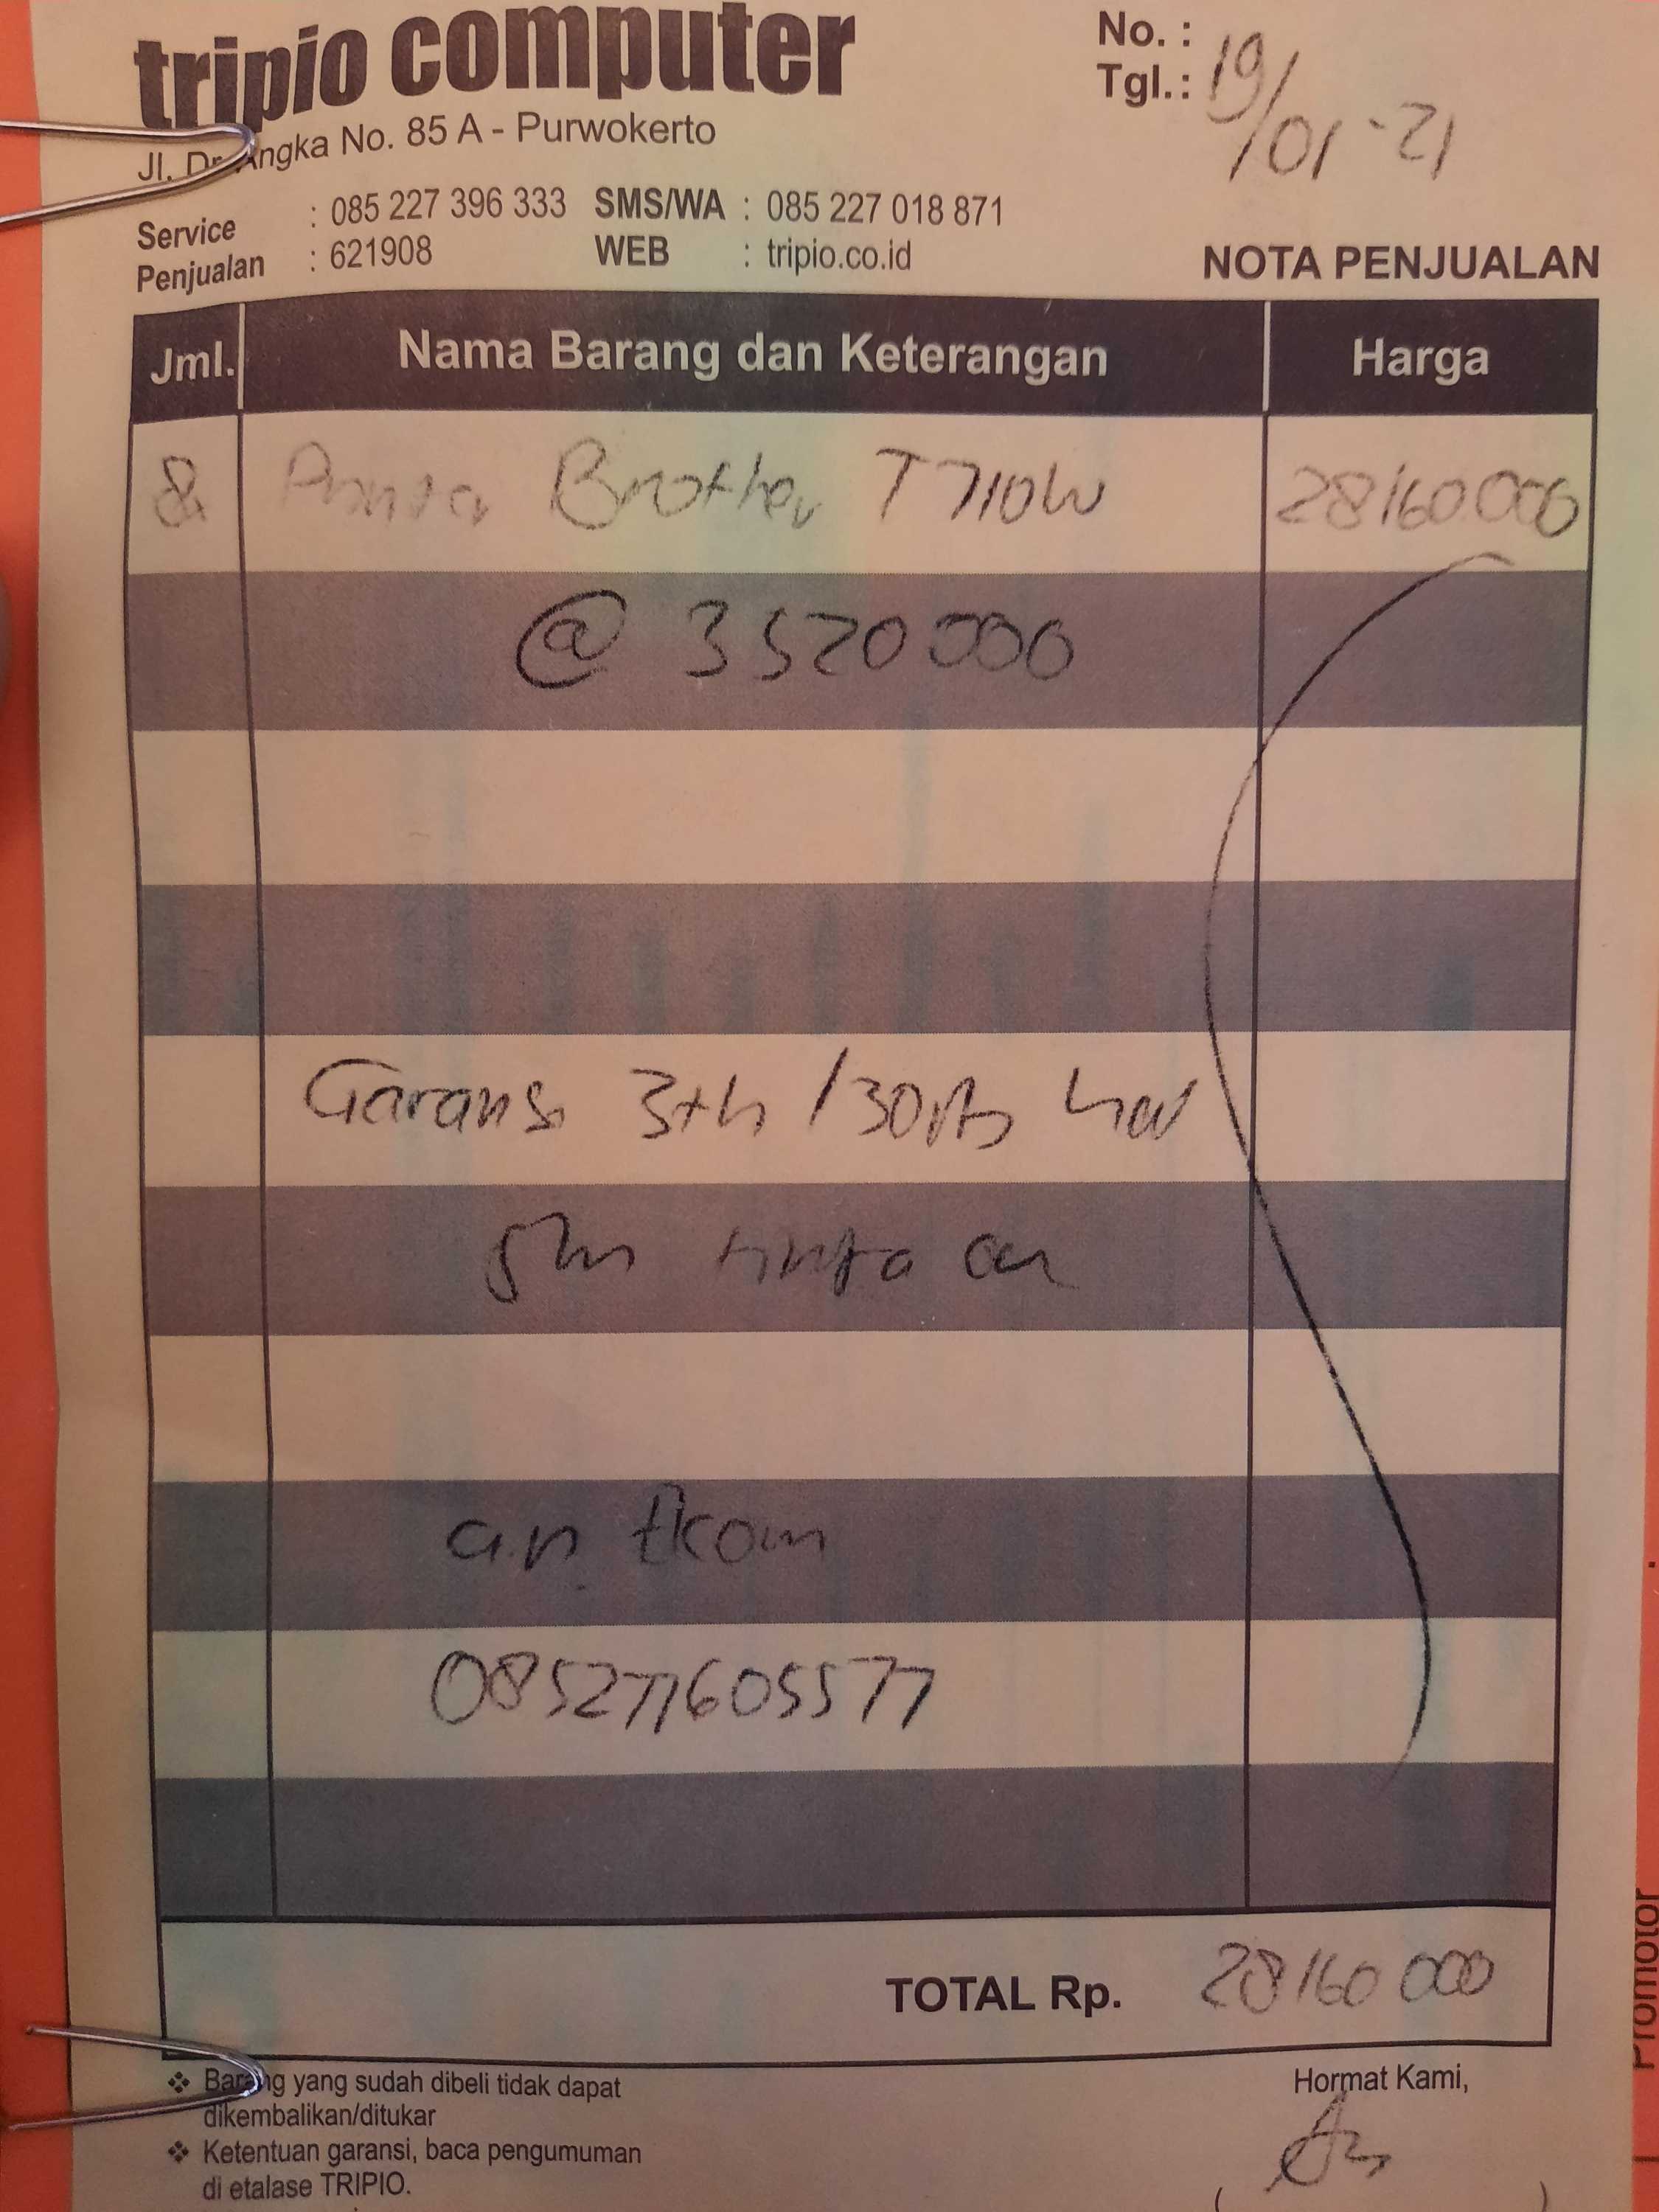 tripio computer
Jl. Dr. Angka No. 85 A - Purwokerto
No. :
Tgl. : 19/01-21
Service : 085 227 396 333 SMS/WA : 085 227 018 871
Penjualan : 621908 WEB : tripio.co.id
NOTA PENJUALAN
Jml. Nama Barang dan Keterangan Harga
8 Printer Brother T710W 28160.000
@ 3520000
Garansi 3th /30rb hal
tinta ori
a.n. tkom
085277605577
TOTAL Rp. 28160 000
❖ Barang yang sudah dibeli tidak dapat
dikembalikan/ditukar
❖ Ketentuan garansi, baca pengumuman
di etalase TRIPIO.
Hormat Kami,
( )
Promotor